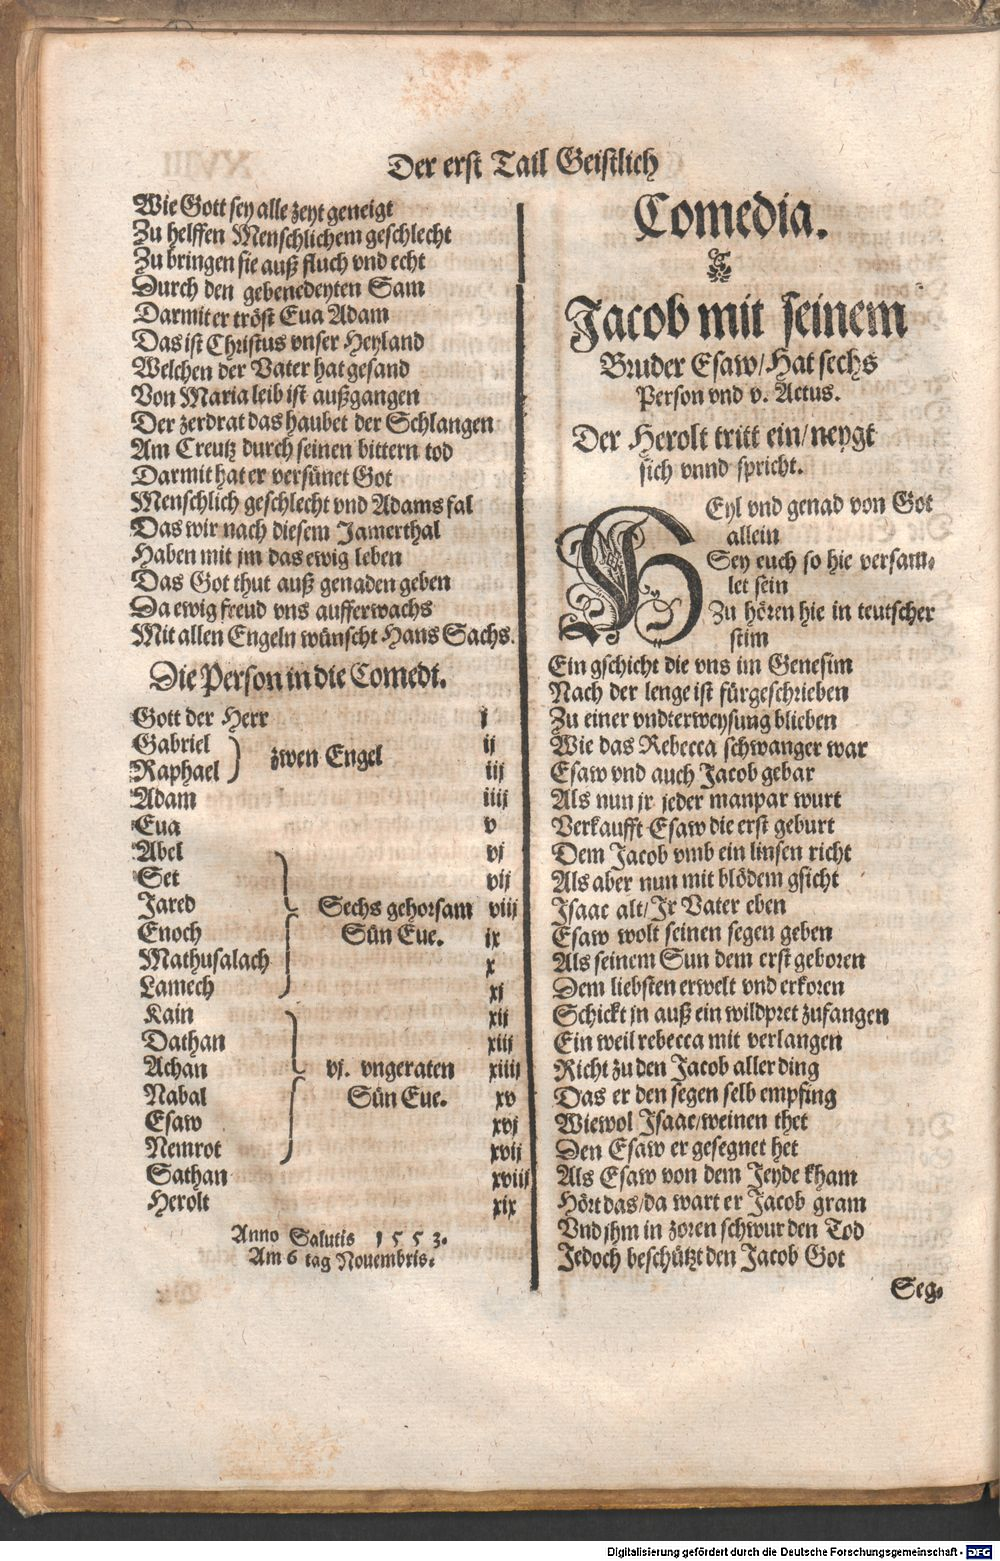 Der erst Tail Geistlich
Wie Gott sey alle zeyt geneigt
Zu helffen Menschlichem geschlecht
Zu bringen sie auß fluch vnd echt
Durch den gebenedeyten Sam
Darmit er tröst Eua Adam
Das ist Christus vnser Heyland
Welchen der Vater hat gesand
Von Maria leib ist außgangen
Der zerdrat das haubet der Schlangen
Am Creutz durch seinen bittern tod
Darmit hat er versünet Got
Menschlich geschlecht vnd Adams fal
Das wir nach diesem Jamerthal
Haben mit jm das ewig leben
Das Got thut auß genaden geben
Da ewig freud vns aufferwachs
Mit allen Engeln wünscht Hans Sachs.
Die Person in die Comedi.
Gott der Herr j
Gabriel ij
zwen Engel
Raphael iij
Adam iiij
Eua v
Abel vj
Set vij
Jared Sechs gehorsam viij
Enoch Sün Eue. ix
Mathusalach x
Lamech xj
Kain xij
Dathan xiij
Achan vj. vngeraten xiiij
Nabal Sün Eue. xv
Esaw xvj
Nemrot xvij
Sathan xviij
Herolt xix
Anno Salutis 1553.
Am 6 tag Nouembris.
Comedia.
Jacob mit seinem
Bruder Esaw/Hat sechs
Person vnd v. Actus.
Der Herolt tritt ein/neygt
sich vnnd spricht.
HEyl vnd genad von Got
allein
Sey euch so hie versam⸗
let sein
Zu hören hie in teutscher
stim
Ein gschicht die vns im Genesim
Nach der lenge ist fürgeschrieben
Zu einer vndterweysung blieben
Wie das Rebecca schwanger war
Esaw vnd auch Jacob gebar
Als nun jr jeder manpar wurt
Verkaufft Esaw die erst geburt
Dem Jacob vmb ein linsen richt
Als aber nun mit blödem gsicht
Isaac alt/Jr Vater eben
Esaw wolt seinen segen geben
Als seinem Sun dem erst geboren
Dem liebsten erwelt vnd erkoren
Schickt jn auß ein wildpret zufangen
Ein weil rebecca mit verlangen
Richt zu den Jacob aller ding
Das er den segen selb empfing
Wiewol Isaac/weinen thet
Den Esaw er gesegnet het
Als Esaw von dem Jeyde kham
Hört das/da wart er Jacob gram
Vnd jhm in zoren schwur den Tod
Jedoch beschützt den Jacob Got
Seg⸗
Digitalisierung gefördert durch die Deutsche Forschungsgemeinschaft - DFG